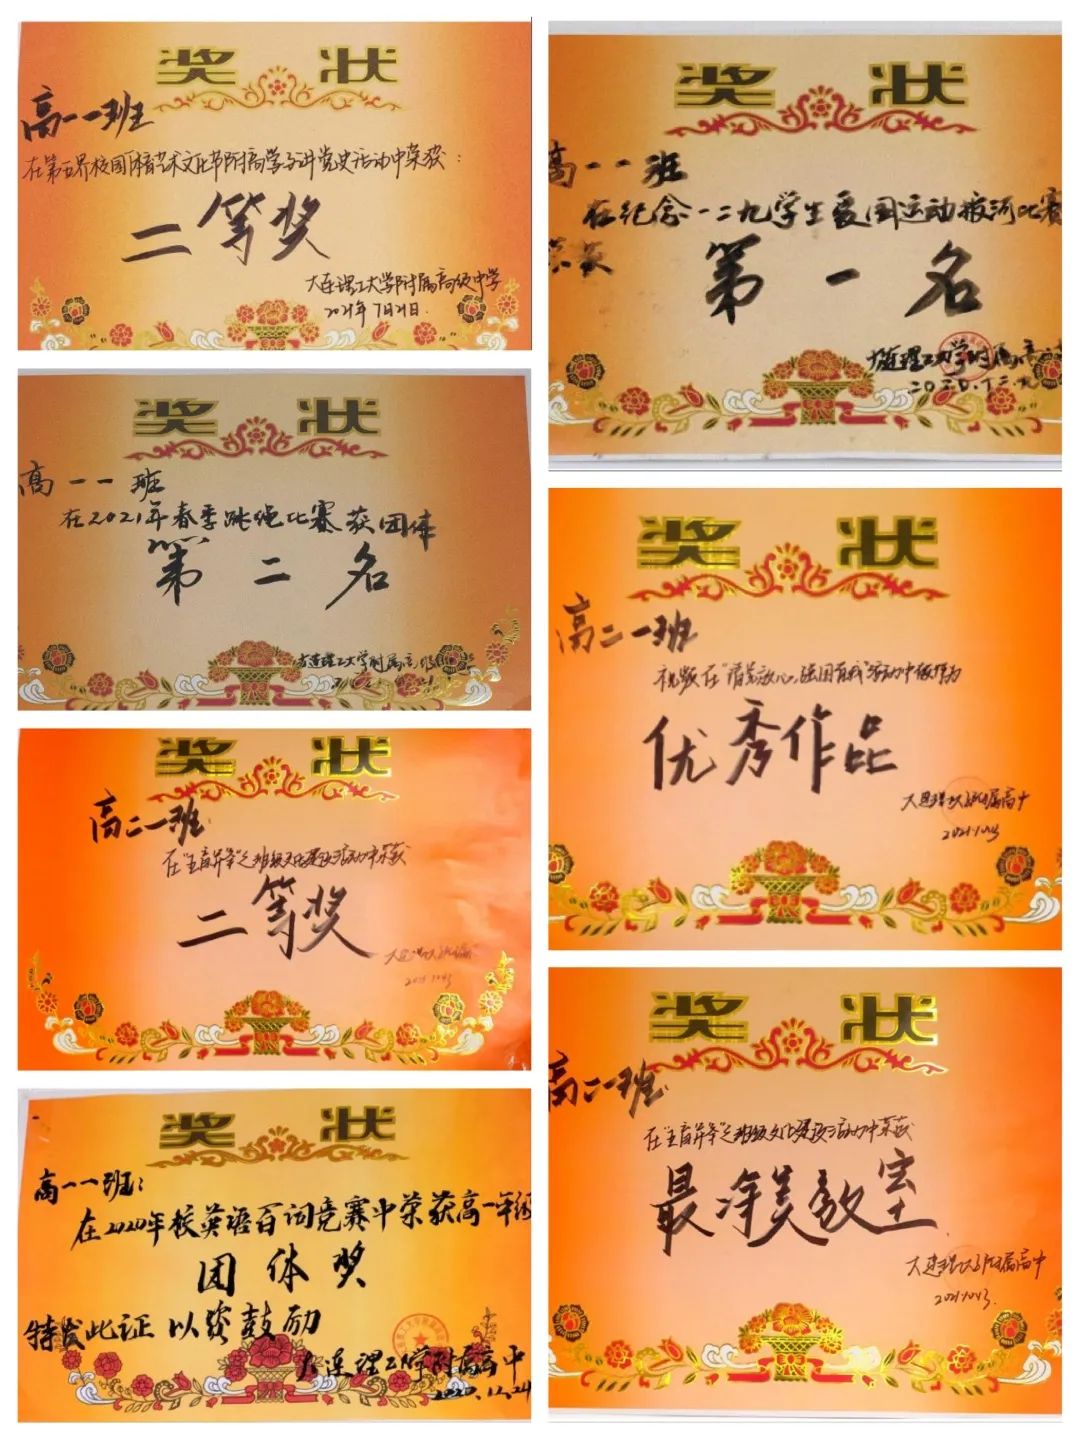 奖 状
高一一班
在第五界校园体育艺术文化节附高学子讲党史活动中荣获:
二等奖
大连理工大学附属高级中学
2021年7月21日.
奖 状
高一一班
在2021年春季跳绳比赛获团体
第二名
大连理工大学附属高
奖 状
高二一班
在"五育并举"之班级文化建设活动中荣获
二等奖
奖 状
高一一班:
在2020年校英语百词竞赛中荣获高一年级
团体奖
特发此证 以资鼓励
大连理工大学附属高中
2020.12.24
奖 状
高一一班
在纪念一二九学生爱国运动拔河比赛
荣获
第一名
大连理工大学附属高
2020.十二.九
奖 状
高二一班
祝贺在"请党放心,强国有我"活动中被评为
优秀作品
大连理工大附属高中
2021.10.13
奖 状
高二一班
在"五育并举"之班级文化建设活动中荣获
最净美教室
大连理工大附属高中
2021.10.13.